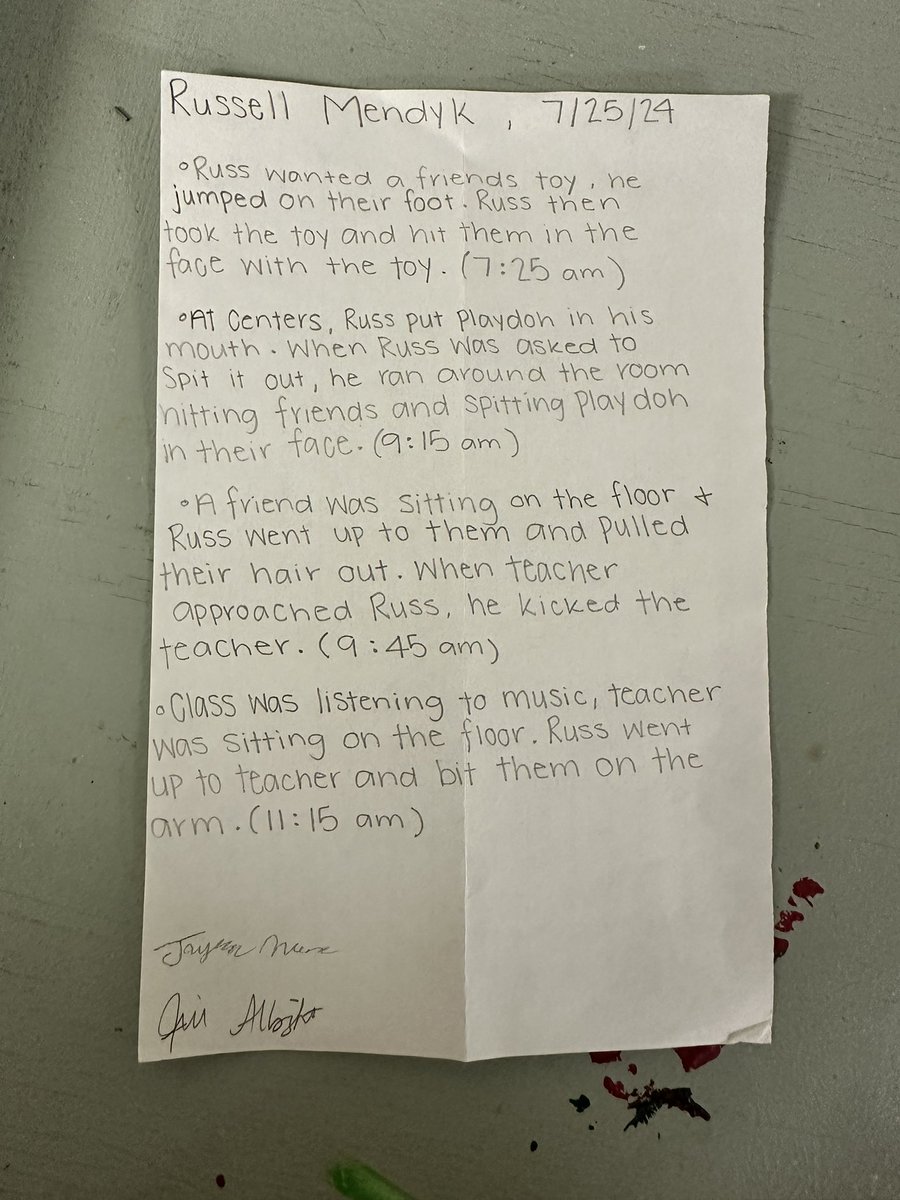 Russell Mendyk, 7/25/24
°Russ wanted a friends toy, he
jumped on their foot. Russ then
took the toy and hit them in the
face with the toy. (7:25 am)
°At Centers, Russ put Playdoh in his
mouth. When Russ was asked to
Spit it out, he ran around the room
hitting friends and spitting Playdoh
in their face. (9:15 am)
°A friend was sitting on the floor &
Russ went up to them and pulled
their hair out. When teacher
approached Russ, he kicked the
teacher. (9:45 am)
°Class was listening to music, teacher
was sitting on the floor. Russ went
up to teacher and bit them on the
arm. (11:15 am)